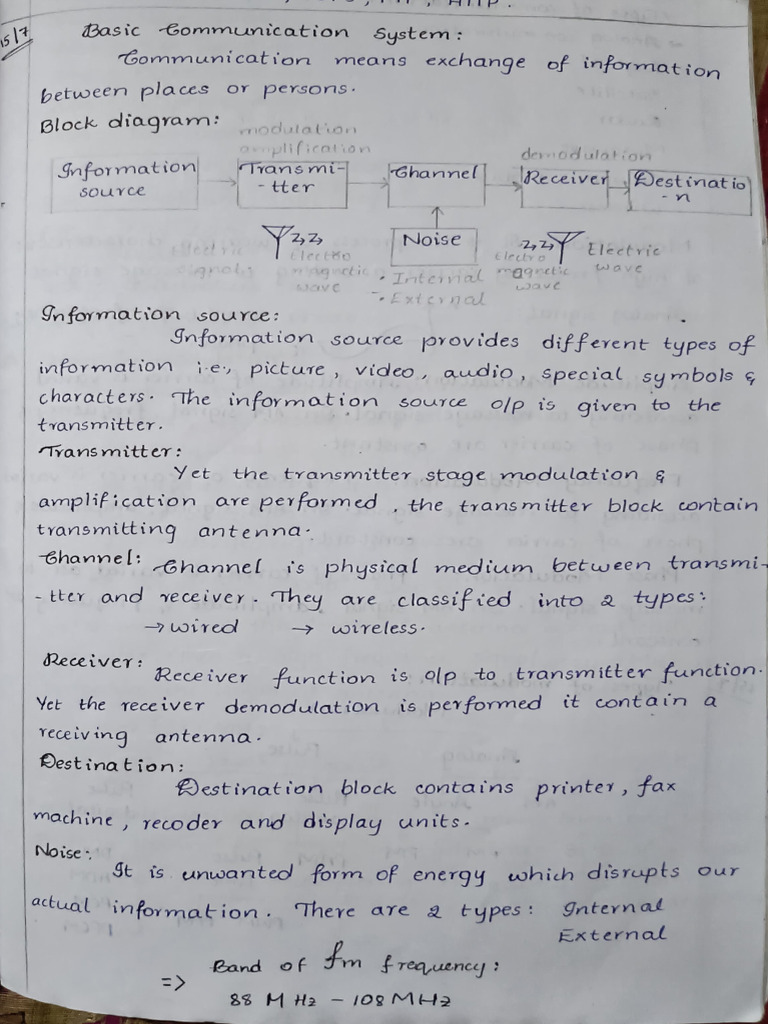 15/7
Basic Communication System:
Communication means exchange of information
between places or persons.
Block diagram:
modulation
amplification
demodulation
Information
source
Transmi-
-tter
Channel
Receiver
Destinatio
-n
Noise
Electro
magnetic
wave
• Internal
• External
Electro
magnetic
wave
Electric
wave
Information source:
Information source provides different types of
information i.e, picture, video, audio, special symbols &
characters. The information source o/p is given to the
transmitter.
Transmitter:
Yet the transmitter stage modulation &
amplification are performed, the transmitter block contain
transmitting antenna.
Channel: Channel is physical medium between transmi-
-tter and receiver. They are classified into 2 types:
→ wired → wireless.
Receiver:
Receiver function is o/p to transmitter function.
Yet the receiver demodulation is performed it contain a
receiving antenna.
Destination:
Destination block contains printer, fax
machine, recoder and display units.
Noise:
It is unwanted form of energy which disrupts our
actual information. There are 2 types: Internal
External
Band of fm frequency:
=>
88 MHz - 108 MHz